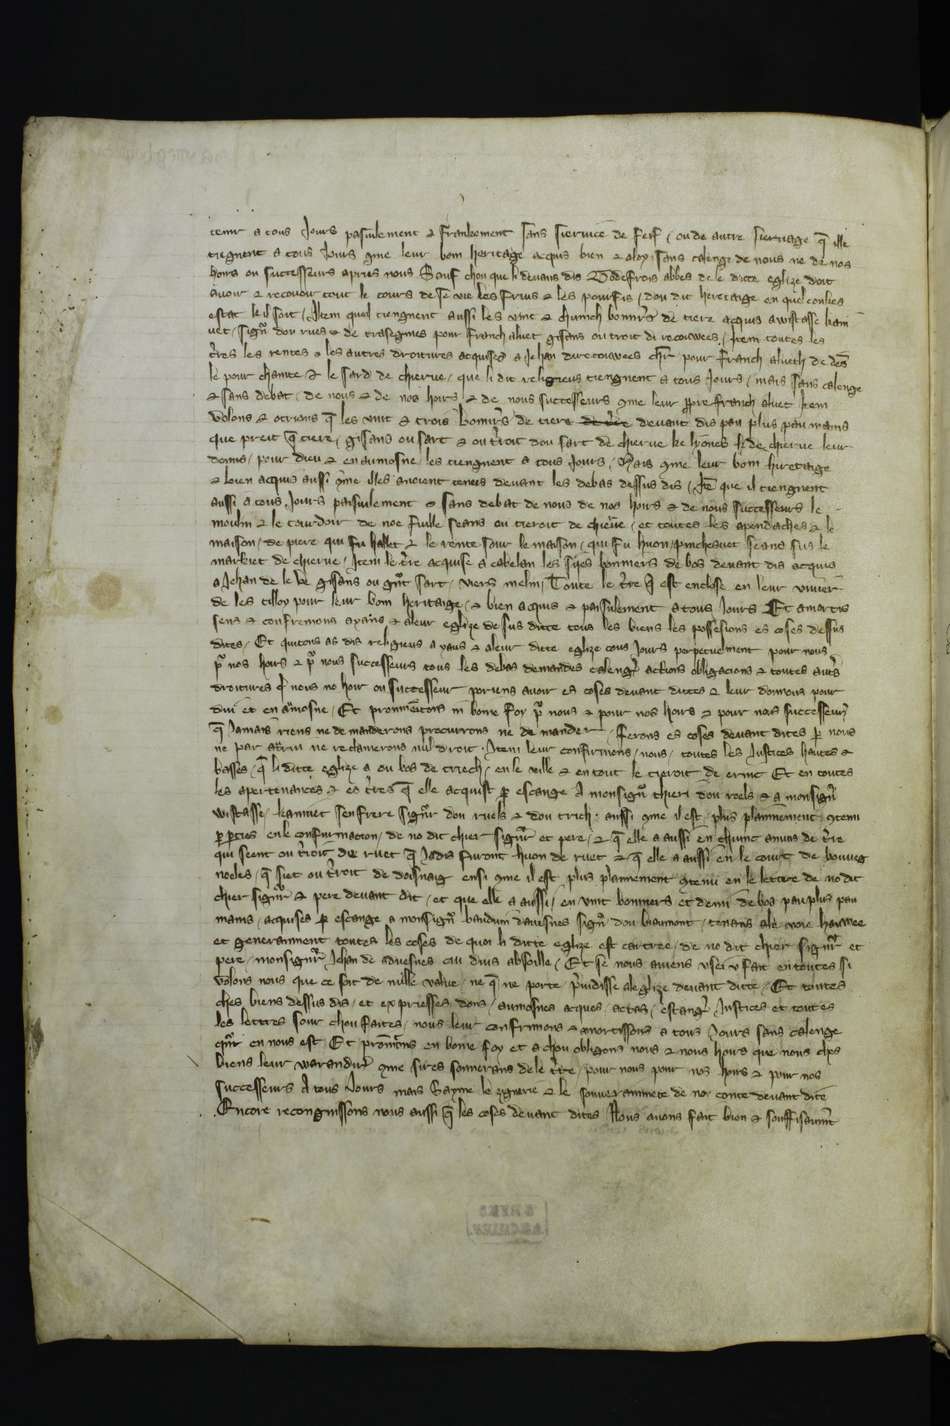 tenir a tous Jours paisiulement & frankement sans siervice de fief / ou de autre siervage q̄ ille
tiegnent a tous Jours 9me leur bom heritage acquis bien & aloy / sans calenge de nous ne de nos
hoirs ou successeurs apries nous Sauf chou que li devans dis Godefrois abbes de le ditte eglize doit
avoir & recevoir tout le cours de se vie les fruis & les pourfis / dou dit heretaige en quel conkes
estat ke il soit / Item quil tiengnent aussi les vint & chuinch bonnirs de tiere acquis a wistasse
sign̄r dou rues & de trasegnies pour franch aluet gisans ou troit di recouwees / Item toutes les
t̄res les rentes & les autres droitures acquises a Jehan de recouwees ch̄r pour franch alueth de
le pour chainte & le sardi de chierve / que li dit religieus tiengnent a tous Jours / mais sans calenge
& sans debat / de nous & de nos hoirs & de nous successeurs 9me leur ppre franch aluet Item
volons & otrions q̄ les vint & trois bonnirs de tiere devant dis pau plus pau mains
que preit q̄ tiere / gisans ou sart & ou t̄roit dou sart de chierve ke leur
donna / pour dieu & en aumosne les tiengnent a tous Jours / Mais 9me leur bom hiretaige
& bien acquis aussi 9me illes avoient tenus devant les debas dessus dis / It̄ que il tiengnent
aussi a tous Jours paisiulement & sans debat de nous de nos hoirs & de nous successeurs le
moulin & le tourdoir de noe fuille seans ou tieroit de chierve / et toutes les apendaches & le
maison / de piere qui fu hallet & le rente sour le maison / qui fu huon / pinchevet seans sus le
markiet de chierve / Item le t̄re acquise a cabelan les siies bonniers de bos devant dis acquis
a Jehan de le gisans ou ḡnt sart / viers melin / Toute le t̄re q̄ est enclose en leur vivier
de les tilloy pour leur bom heritaige / & bien acquis & paisiulement a tous Jours Et amortis
sens & confremons ayaus & aleur eglize desus ditte tous les biens les possesions es coses dessus
dites / Et quitons as dis religieus a yaus & a leur dicte eglize tous Jours porpetuelment pour nous
p̄ nos hoirs & p̄ nous successeurs tous les debas demandes calenges actions obligacions & toutes aut̄s
droitures q̄ nous no hoir ou successeur poriens avoir es coses devant dittes & leur donnons pour
diu et en a̅mosne / Et prommetons in bonne foy p̄ nous & pour nos hoirs & pour nous successeurs
q̄ Jamais riens ne demanderons procurrons ne demander / ferons es coses devant dites p̱ nous
ne par autrui ne reclamerons nul droit / Item leur confirmons / nous / toutes les Justices hautes &
basses / q̄ li ditte eglize a ou bos de triech / en le ville & en tout le tieroit de erinc Et en toutes
les apiertenances & es t̄res q̄ elle acquist p̱ escange A monsign̄r thieri dou roels & a monsign̄r
wistasse senfrere sign̄r dou ruels & dou trich / aussi 9me il est / plus plainnement 9tenu
p̱ p̱ties en le confirmacion / de no dit chier sign̄r et pere / & q̄ elle a aussi en chuinc anvins de t̄re
qui seent ou t̄roit de ruet q̄ Jadis furont huon de ruet & q̄ elle a aussi en le court de bouveg
noeles / q̄ siet ou t̄roit de doisnaig ensi 9me il est plus plainnement 9tenu en le lettre de no dit
chier sign̄r & pere devant dit / et que elle a aussi / en vint bonniers et demi de bos pau plus pau
mains / acquises p̱ escange a monsign̄r bauduin davesnes sign̄r dou biaumont / tenans ale voie harwee
et generaument toutes les coses de quoi li ditte eglize est cartree / de no dit chier sign̄r et
pere / monsign̄r Jehan de avesnes cui dius absoille / Et se nous aviens usei u fait en toutes si
volons nous que ce soit de nulle value / ne q̄ ne porte p̄iudisse ale glize devant ditte / Et toutes
ches biens dessus dis / et expriesses dons / aumosnes acques / actas / escanges Justices et toutes
les lettres sour chou faites / nous leur confirmons & amortissons a tous Jours sans calenge
en nous est Et prom̄tons en bonne foy et a chou obligons nous & nous hoirs que nous ches
biens leur warandirons 9me sires souverains dele t̄re / pour nous pour nos hoirs & pour nos
successeurs A tous Jours mais Sayme le signerie & le souverainnete de no conte devant dite
Encore recongnissons nous aussi q̄ les coses devant dites Nous avons fait bien & souffisaum̄t